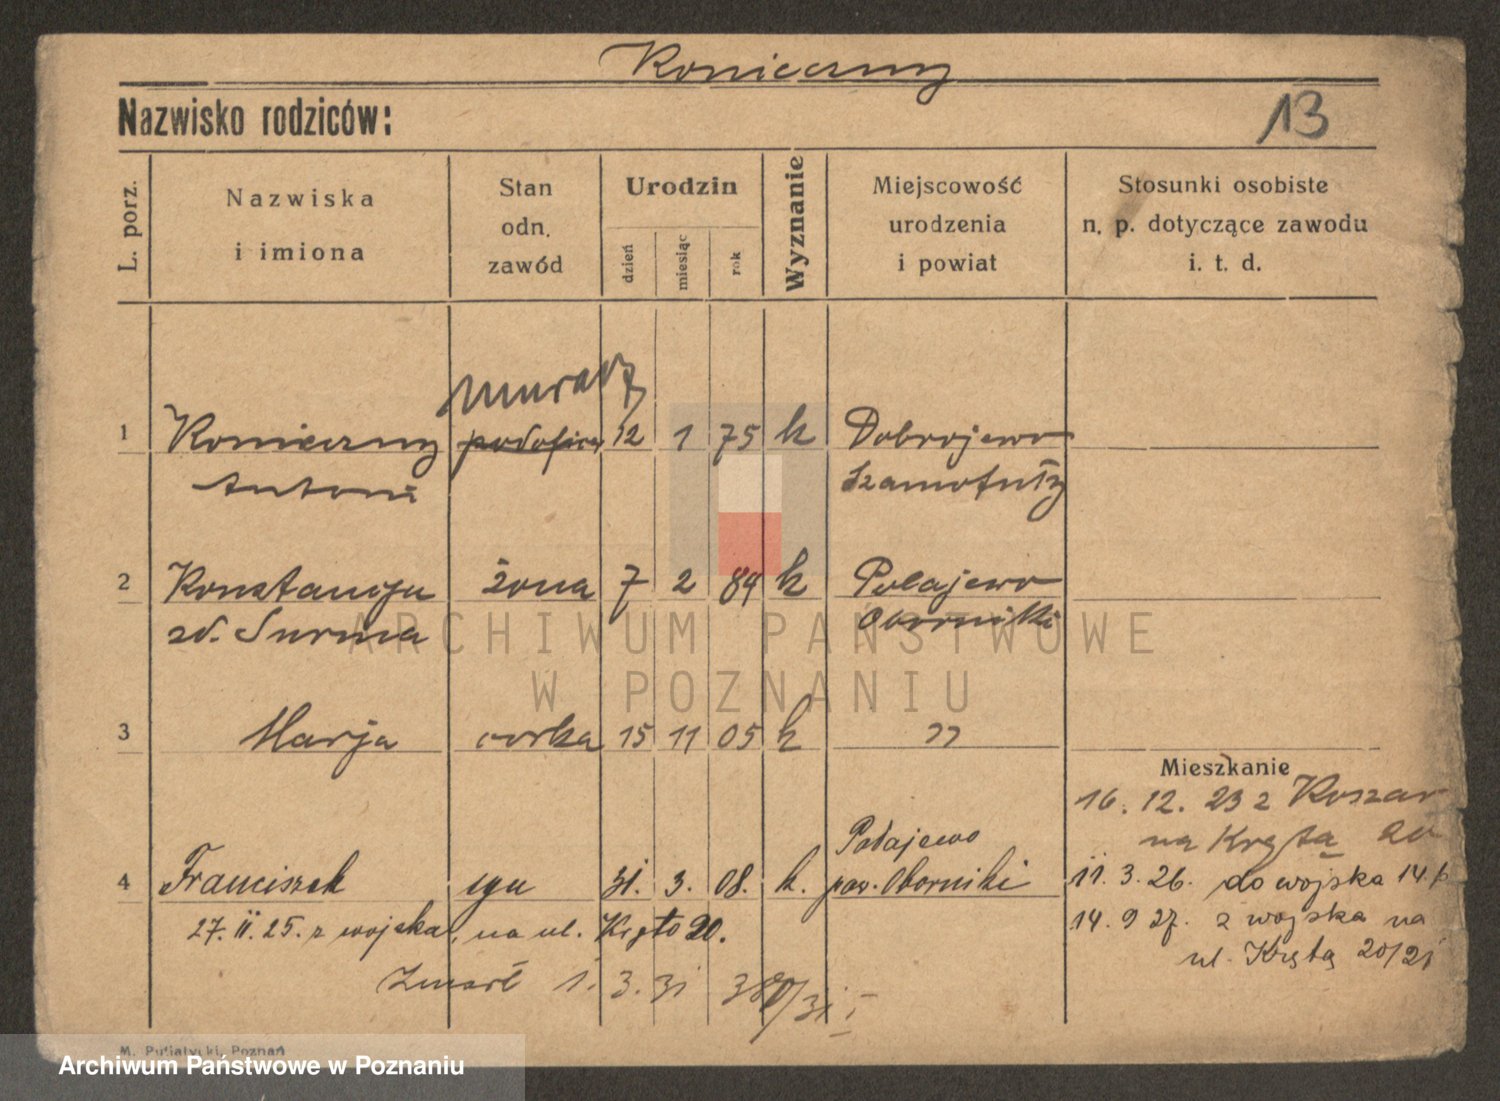 Konieczny
Nazwisko rodziców:
13
L. porz.
Nazwiska
i imiona
Stan
odn.
zawód
Urodzin
dzień
miesiąc
rok
Wyznanie
Miejscowość
urodzenia
i powiat
Stosunki osobiste
n. p. dotyczące zawodu
i. t. d.
murarz
1 Konieczny podoficer 12 1 75 k Dobrojewo
Antoni Szamotuły
2 Konstancja żona 7 2 84 k Połajewo
zd. Surma Oborniki
3 Marja córka 15 11 05 k "
Mieszkanie
16. 12. 23 z Koszar
na Krętą 20
Połajewo
4 Franciszek syn 31. 3. 08. k. pow. Oborniki
11. 3. 26. do wojska 14 p
27. II. 25. z wojska, na ul. Kręto 20.
14. 9 27. z wojska na
ul. Krętą 20/21
Zmarł 1. 3. 31
ARCHIWUM PAŃSTWOWE
W POZNANIU
M. Putiatycki, Poznań
Archiwum Państwowe w Poznaniu